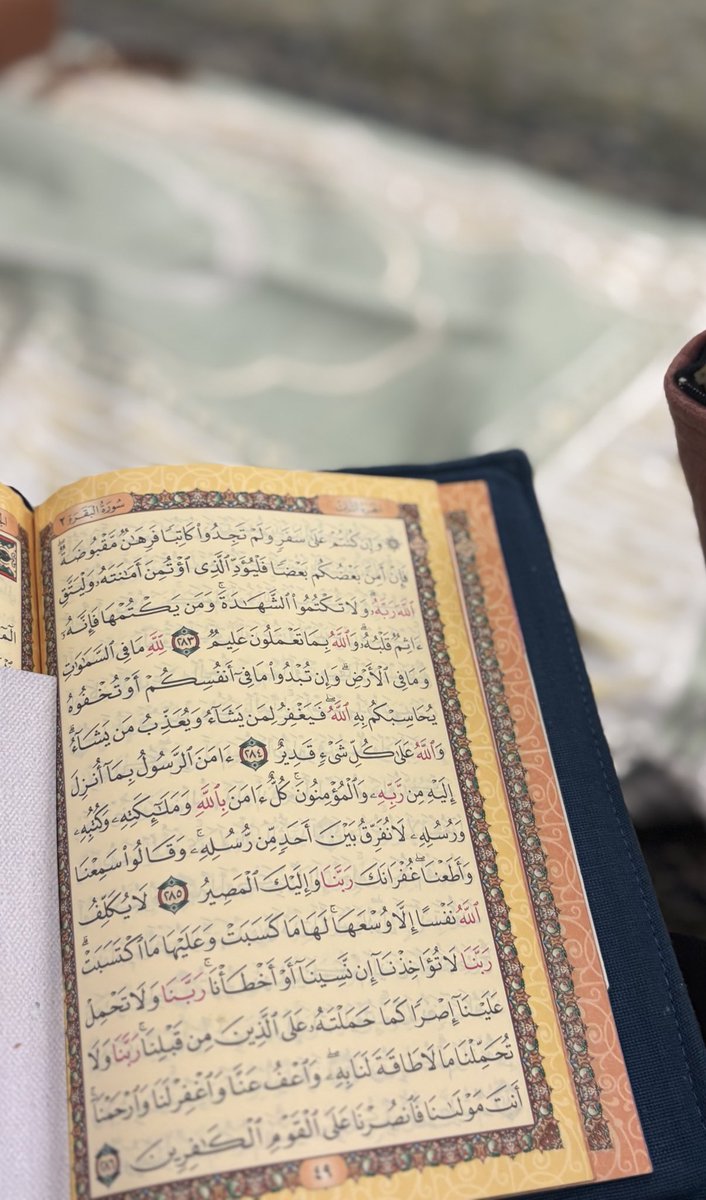 سُورَةُ البَقَرَةِ ٢
۞ وَإِن كُنتُمْ عَلَىٰ سَفَرٍ وَلَمْ تَجِدُوا۟ كَاتِبًا فَرِهَٰنٌ مَّقْبُوضَةٌ ۖ
فَإِنْ أَمِنَ بَعْضُكُم بَعْضًا فَلْيُؤَدِّ ٱلَّذِى ٱؤْتُمِنَ أَمَٰنَتَهُۥ وَلْيَتَّقِ
ٱللَّهَ رَبَّهُۥ ۗ وَلَا تَكْتُمُوا۟ ٱلشَّهَٰدَةَ ۚ وَمَن يَكْتُمْهَا فَإِنَّهُۥٓ
ءَاثِمٌ قَلْبُهُۥ ۗ وَٱللَّهُ بِمَا تَعْمَلُونَ عَلِيمٌ ٢٨٣ لِّلَّهِ مَا فِى ٱلسَّمَٰوَٰتِ
وَمَا فِى ٱلْأَرْضِ ۗ وَإِن تُبْدُوا۟ مَا فِىٓ أَنفُسِكُمْ أَوْ تُخْفُوهُ
يُحَاسِبْكُم بِهِ ٱللَّهُ ۖ فَيَغْفِرُ لِمَن يَشَآءُ وَيُعَذِّبُ مَن يَشَآءُ ۗ
وَٱللَّهُ عَلَىٰ كُلِّ شَىْءٍ قَدِيرٌ ٢٨٤ ءَامَنَ ٱلرَّسُولُ بِمَآ أُنزِلَ
إِلَيْهِ مِن رَّبِّهِۦ وَٱلْمُؤْمِنُونَ ۚ كُلٌّ ءَامَنَ بِٱللَّهِ وَمَلَٰٓئِكَتِهِۦ وَكُتُبِهِۦ
وَرُسُلِهِۦ لَا نُفَرِّقُ بَيْنَ أَحَدٍ مِّن رُّسُلِهِۦ ۚ وَقَالُوا۟ سَمِعْنَا
وَأَطَعْنَا ۖ غُفْرَانَكَ رَبَّنَا وَإِلَيْكَ ٱلْمَصِيرُ ٢٨٥ لَا يُكَلِّفُ
ٱللَّهُ نَفْسًا إِلَّا وُسْعَهَا ۚ لَهَا مَا كَسَبَتْ وَعَلَيْهَا مَا ٱكْتَسَبَتْ ۗ
رَبَّنَا لَا تُؤَاخِذْنَآ إِن نَّسِينَآ أَوْ أَخْطَأْنَا ۚ رَبَّنَا وَلَا تَحْمِلْ
عَلَيْنَآ إِصْرًا كَمَا حَمَلْتَهُۥ عَلَى ٱلَّذِينَ مِن قَبْلِنَا ۚ رَبَّنَا وَلَا
تُحَمِّلْنَا مَا لَا طَاقَةَ لَنَا بِهِۦ ۖ وَٱعْفُ عَنَّا وَٱغْفِرْ لَنَا وَٱرْحَمْنَآ ۚ
أَنتَ مَوْلَىٰنَا فَٱنصُرْنَا عَلَى ٱلْقَوْمِ ٱلْكَٰفِرِينَ ٢٨٦
٤٩